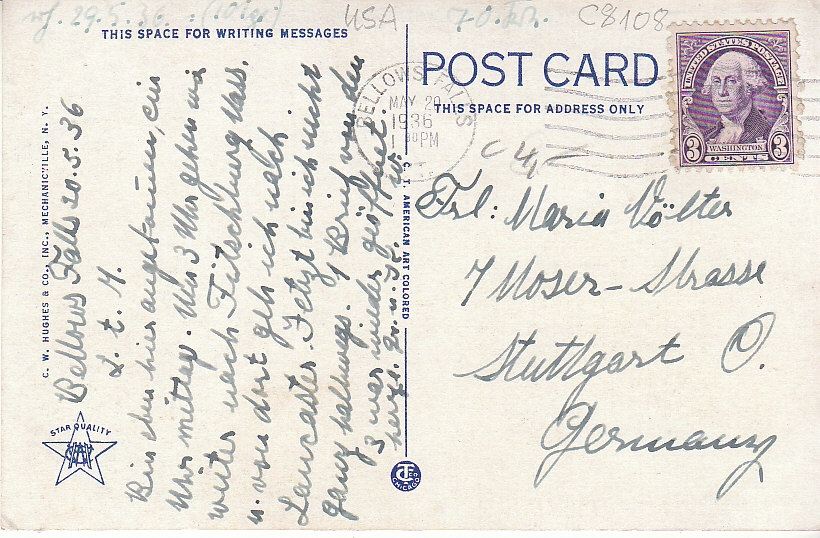 rf. 29.5.36. (10 Tge)
USA
70. Feh.
C8108
THIS SPACE FOR WRITING MESSAGES
POST CARD
THIS SPACE FOR ADDRESS ONLY
BELLOWS FALLS
MAY 20
1936
PM
UNITED STATES POSTAGE
3
WASHINGTON
3
CENTS
C. W. HUGHES & CO., INC., MECHANICVILLE, N. Y.
STAR QUALITY
C. T. AMERICAN ART COLORED
CHICAGO
Bellows Falls 20.5.36
L. t. M.
Bin eben hier angekommen, ein
Uhr mittag. Um 3 Uhr gehen wir
weiter nach Fitschburg Mass.
u. von dort geh ich nach
Lancaster. Jetzt bin ich nicht
ganz halbwegs. 1 Brief von den
3 war wieder geöffnet.
herzl. Gr. u. K.
Frl: Maria Völter
7 Moser-Strasse
Stuttgart O.
Germany